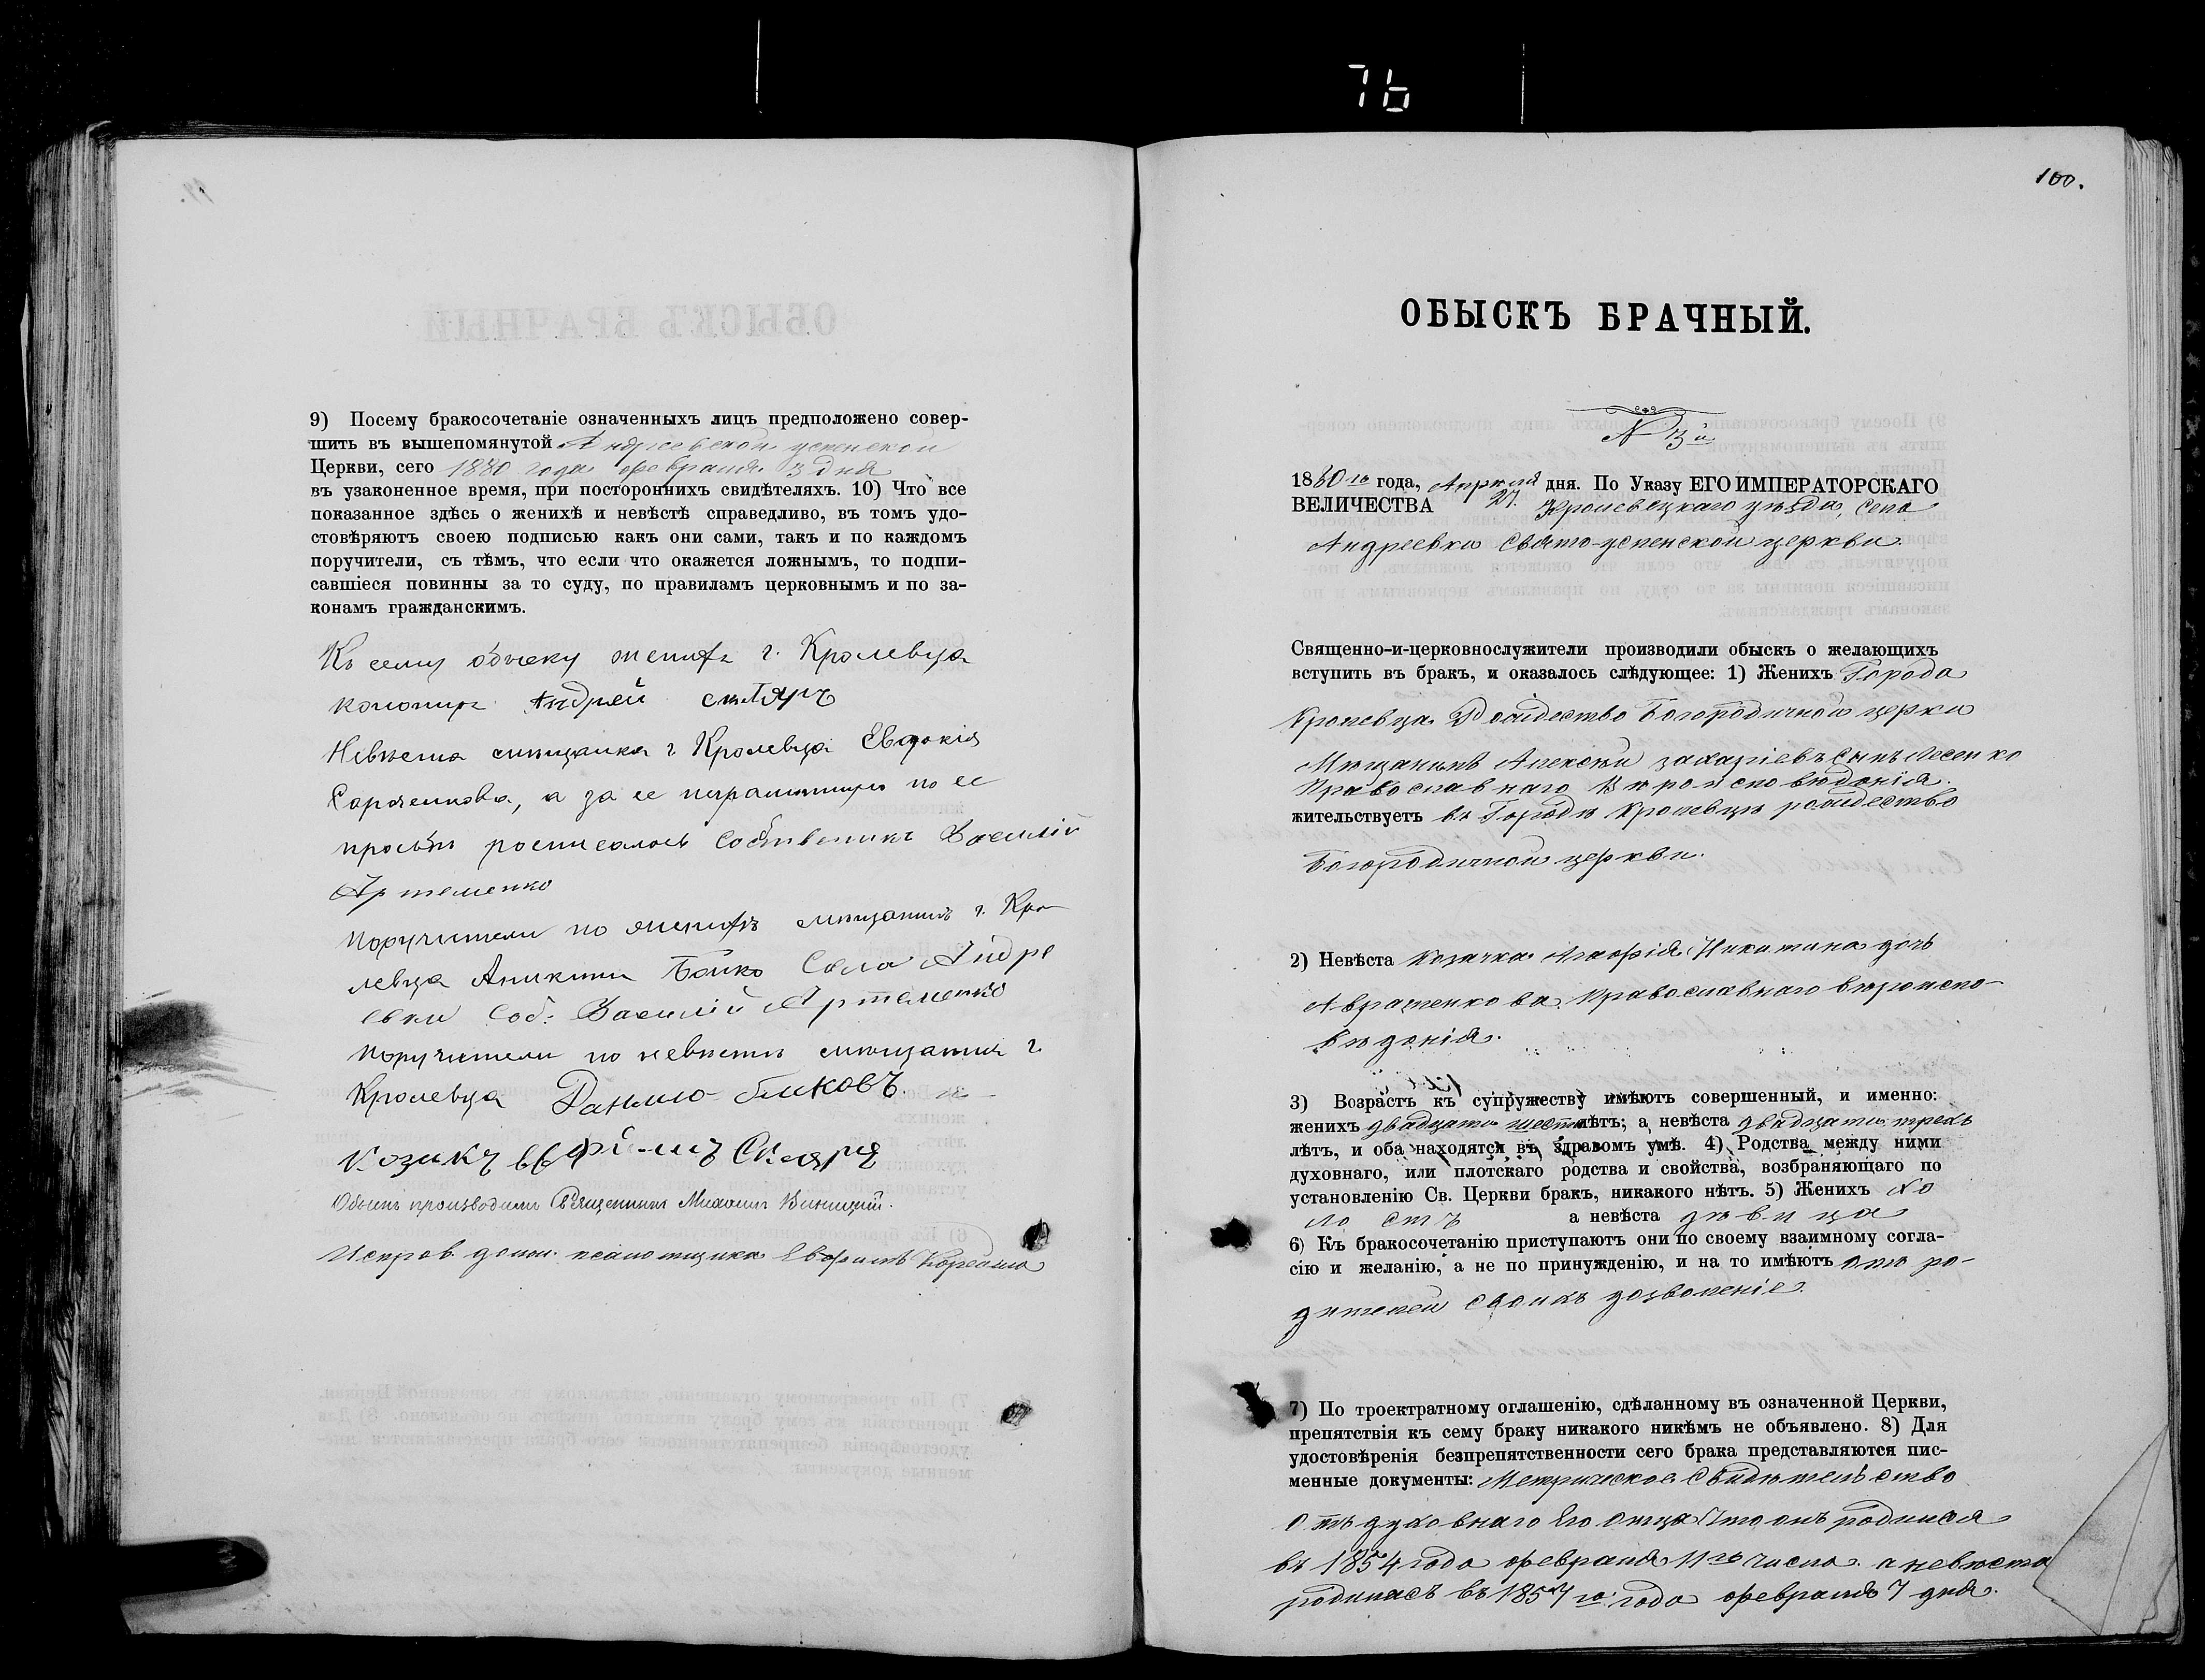 76
100.
9) Посему бракосочетаніе означенныхъ лицъ предположено совер-
шить въ вышепомянутой Андреевской успенской
Церкви, сего 1880 года февраля 3 дня
въ узаконенное время, при постороннихъ свидѣтеляхъ. 10) Что все
показанное здѣсь о женихѣ и невѣстѣ справедливо, въ томъ удо-
стовѣряютъ своею подписью какъ они сами, такъ и по каждомъ
поручители, съ тѣмъ, что если что окажется ложнымъ, то подпи-
савшіеся повинны за то суду, по правиламъ церковнымъ и по за-
конамъ гражданскимъ.
Къ сему обыску женихъ г. Кролевца
Андрей
Невѣста мищанка г Кролевца Евдокія
а за ее неграмотную по ее
просьбѣ росписалось Собственникъ Василій
Артеменко
Поручители по женихѣ мищанинъ г. Кро-
левца Аникити Бойко Села Андре
евки Соб: Василій Артеменко
Поручители по невѣстѣ мищанинъ г.
Кролевца Данило Биковъ. и
козакъ Скляръ
Обыскъ производили Священникъ Михаилъ Виницкій.
Исправ. долж. псаломщика Евфимъ
ОБЫСКЪ БРАЧНЫЙ.
N 3й
1880го года, Апреля 27. дня. По Указу ЕГО ИМПЕРАТОРСКАГО
ВЕЛИЧЕСТВА Кролевецкаго уѣзда, Села
Андреевки Свято-успенской церкви.
Священно-и-церковнослужители производили обыскъ о желающихъ
вступить въ бракъ, и оказалось слѣдующее: 1) Женихъ Города
Кролевца Рождество Богородичной церки
Мищанинъ Алексѣй захаріевъ Сынъ Лесенко
Православнаго Вѣроисповѣданія.
жительствуетъ въ Городѣ Кролевцѣ рождество
Богородичной церкви.
2) Невѣста Козачка Агафія Никитина дочь
Авраменкова Православнаго вѣроиспо-
вѣданія.
3) Возрастъ къ супружеству имѣютъ совершенный, и именно:
женихъ двадцати шести лѣтъ; а невѣста двадцати трехъ
лѣтъ, и оба находятся въ здравомъ умѣ. 4) Родства между ними
духовнаго, или плотскаго родства и свойства, возбраняющаго по
установленію Св. Церкви бракъ, никакого нѣтъ. 5) Женихъ хо
лостъ а невѣста дѣвица
6) Къ бракосочетанію приступаютъ они по своему взаимному согла-
сію и желанію, а не по принужденію, и на то имѣютъ отъ ро-
дителей своихъ дозволеніе.
7) По троектратному оглашенію, сдѣланному въ означенной Церкви,
препятствія къ сему браку никакого никѣмъ не объявлено. 8) Для
удостовѣренія безпрепятственности сего брака представляются пис-
менные документы: Метрическое Свидѣтельство
Отъ духовнаго Его Отца Что онъ родился
въ 1854 года февраля 11го числа. а невѣста
родилась въ 1857го года февраля 7 дня.